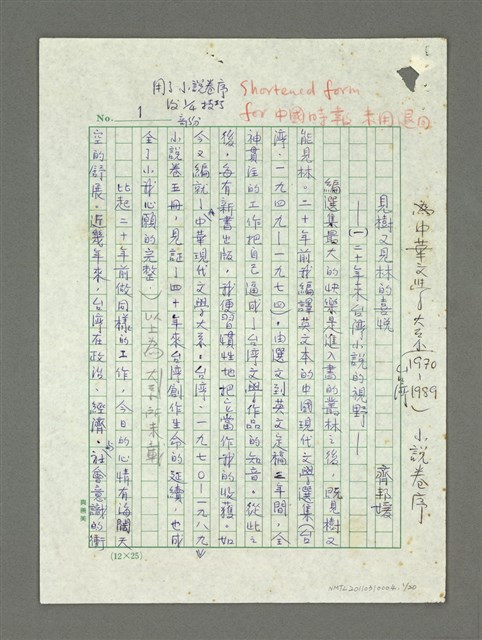 用了小說卷序
約1/4 技巧
部份
Shortened form
for 中國時報 未用 退回
No. 1
為中華文學大系(台灣1970-1989)小說卷序
見樹又見林的喜悅
——(一)二十年來台灣小說的視野——
齊邦媛
編選集最大的快樂是進入書的叢林之後,既見樹又
能見林。二十年前我編譯英文本的中國現代文學選集(台
灣·一九四九—一九七四),由選文到英文定稿三年間,全
神貫注的工作把自己逼成了台灣文學作品的知音。從此之
後,每有新書出版,我便習慣性地把它當作我的收穫。如
今又編就了中華現代文學大系·台灣·一九七〇—一九八九
小說卷五冊,見証了四十年來台灣創作生命的延續,也成
全了小我心願的完整。(以上為大系所未載)
比起二十年前做同樣的工作,今日的心情有海闊天
空的舒展。近幾年來,台灣在政治、經濟、社會意識的衝
(12×25)
NMTL20110910004. 1/20